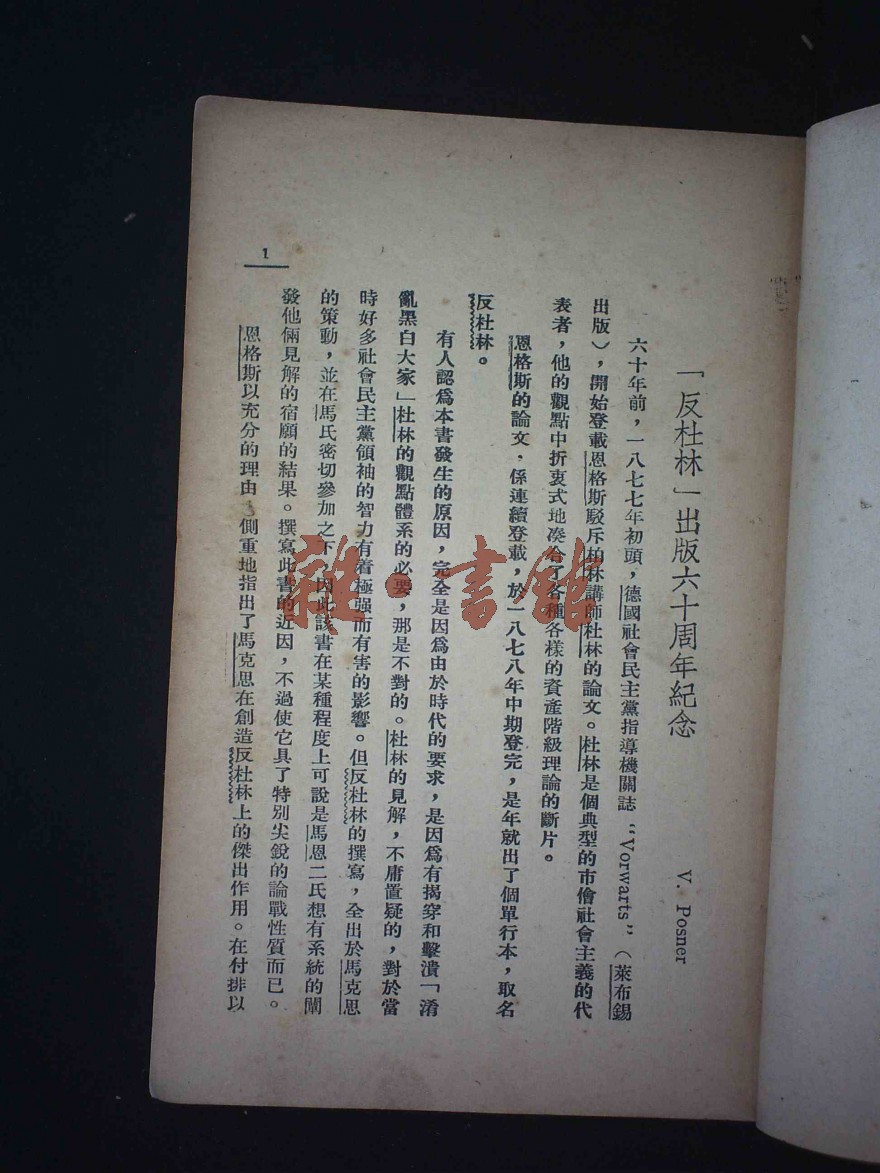 「反杜林」出版六十周年紀念
V. Posner
六十年前，一八七七年初頭，德國社會民主黨指導機關誌“Vorwarts”（萊布錫
出版），開始登載恩格斯駁斥柏林講師杜林的論文。杜林是個典型的市儈社會主義的代
表者，他的觀點中折衷式地湊合了各種各樣的資產階級理論的斷片。
恩格斯的論文，係連續登載，於一八七八年中期登完，是年就出了個單行本，取名
反杜林。
有人認爲本書發生的原因，完全是因爲由於時代的要求，是因爲有揭穿和擊潰「淆
亂黑白大家」杜林的觀點體系的必要，那是不對的。杜林的見解，不庸置疑的，對於當
時好多社會民主黨領袖的智力有着極强而有害的影響。但反杜林的撰寫，全出於馬克思
的策動，並在馬氏密切參加之下，因此該書在某種程度上可說是馬恩二氏想有系統的闡
發他倆見解的宿願的結果。撰寫此書的近因，不過使它具了特別尖銳的論戰性質而已。
恩格斯以充分的理由，側重地指出了馬克思在創造反杜林上的傑出作用。在付排以
1
雜·書館